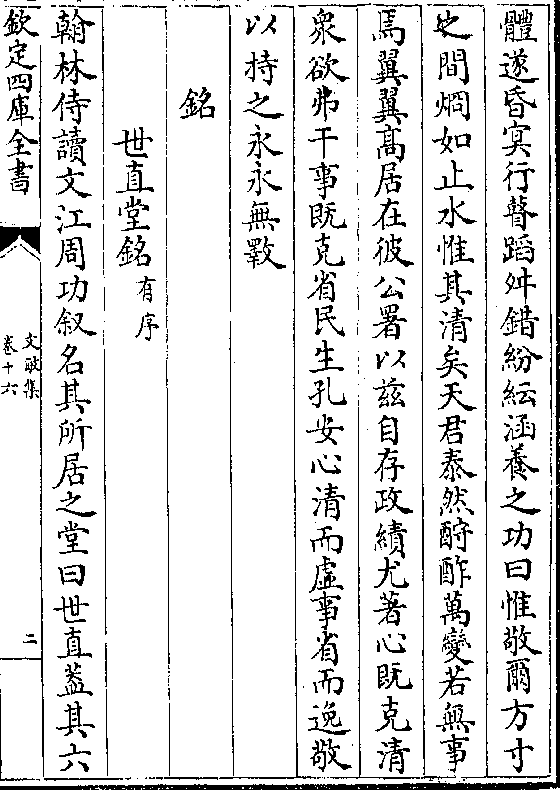 體遂昏寘行瞽蹈舛錯紛紜涵養之功曰惟敬爾方寸
之間烱如止水惟其清矣天君泰然酧酢萬變若無事
焉翼翼髙居在彼公署以兹自存政績尤著心既克清
衆欲弗干事既克省民生孔安心清而虛事省而逸敬
以持之永永無斁
銘
世直堂銘有序
翰林侍讀文江周功叙名其所居之堂曰世直葢其六
欽定四庫全書
文敏集
卷十六
二